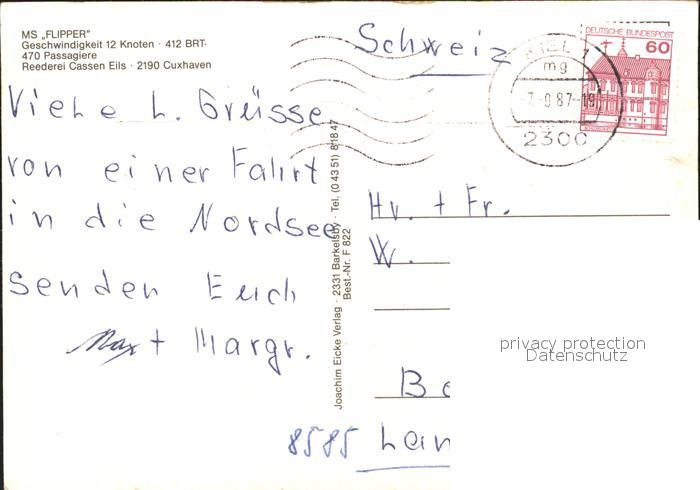 MS „FLIPPER"
Geschwindigkeit 12 Knoten · 412 BRT·
470 Passagiere
Reederei Cassen Eils · 2190 Cuxhaven
Schweiz
DEUTSCHE BUNDESPOST
60
KIEL 1
mg
-7.-9.87-19
2300
Viele l. Grüsse
von einer Fahrt
in die Nordsee
senden Euch
Max + Margr.
Joachim Eicke Verlag · 2331 Barkelsby · Tel. (0 43 51) 8 18 47
Best.-Nr. F 822
Hr. + Fr.
W.
Be
8585 Lan
privacy protection
Datenschutz